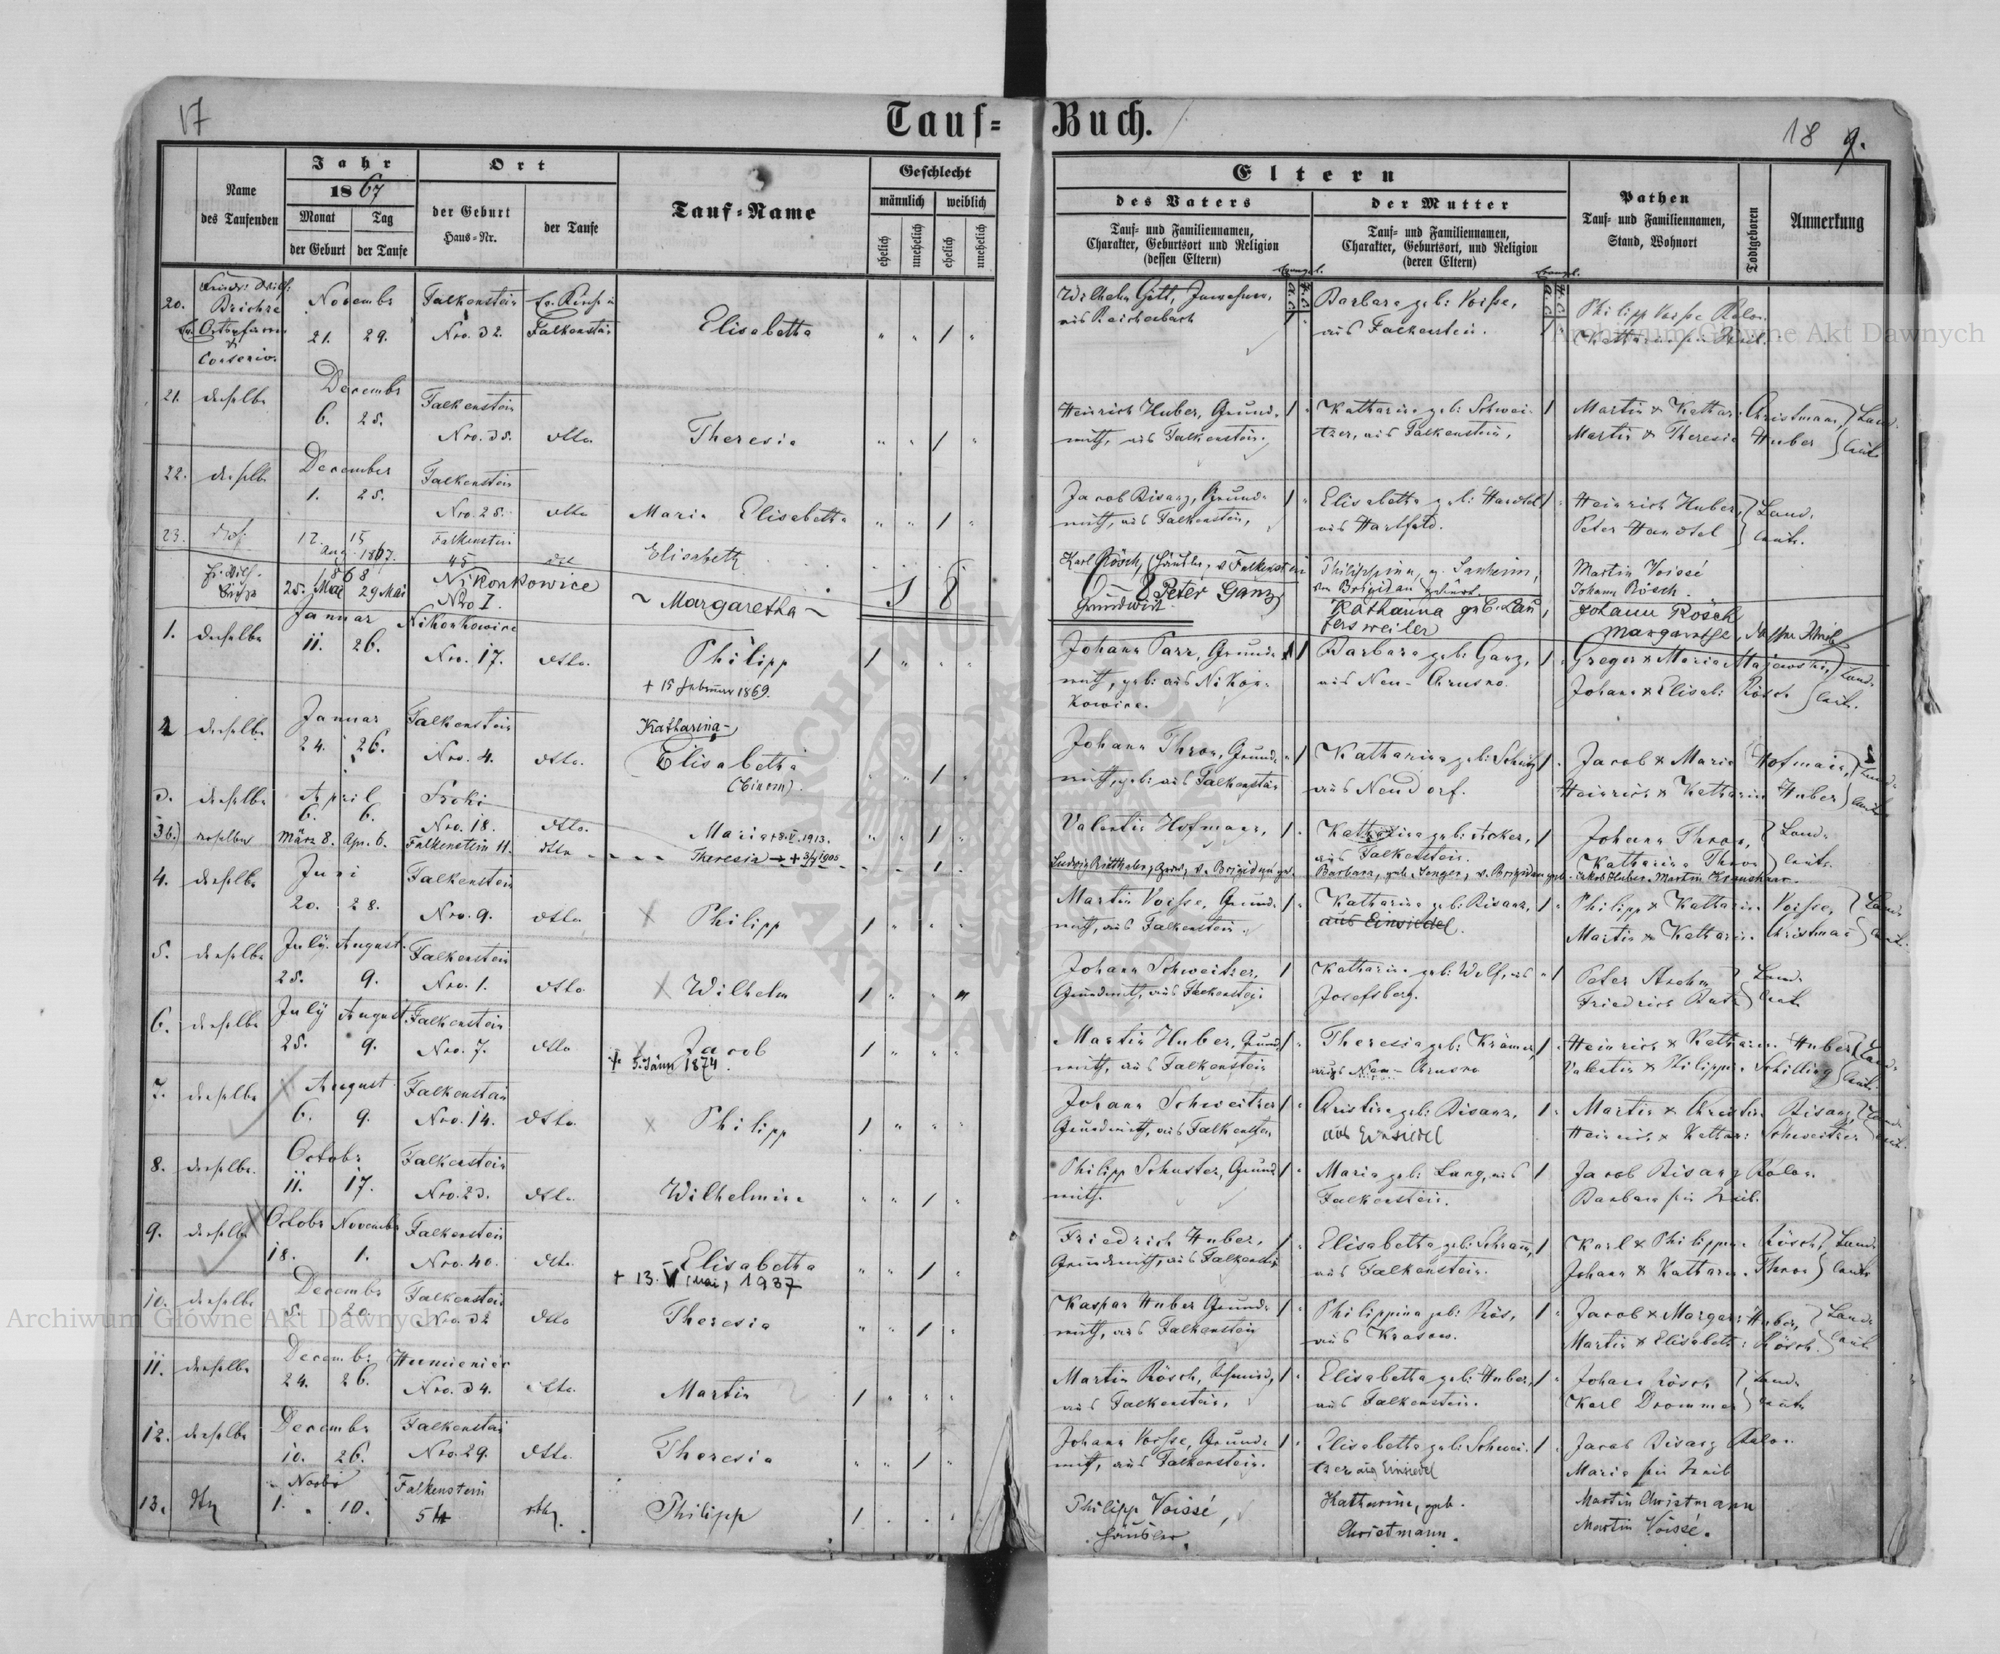 17
Tauf=
Buch.
18 9.
Name
des Taufenden
Jahr
1867
Monat
der Geburt
Tag
der Taufe
Ort
der Geburt
Haus=Nr.
der Taufe
Tauf=Name
Geschlecht
männlich
weiblich
ehelich
unehelich
ehelich
unehelich
Eltern
des Vaters
Tauf= und Familiennamen,
Charakter, Geburtsort und Religion
(dessen Eltern)
der Mutter
Tauf= und Familiennamen,
Charakter, Geburtsort, und Religion
(deren Eltern)
Pathen
Tauf= und Familiennamen,
Stand, Wohnort
Todtgeboren
Anmerkung
20.
Novembr
21. 29.
Falkenstein
Nro. 32.
Falkenstein
Elisabetha
aus Reichenbach
Barbara geb: Voisse,
aus Falkenstein.
Philipp Voisse
21. derselbe
Decembr
6. 25.
Falkenstein
Nro. 35.
dtto
Theresia
Heinrich Huber, Grund-
wirth, aus Falkenstein.
Katharina geb: Schwei-
tzer, aus Falkenstein.
Martin & Kathar: Christmann,
Martin & Theresia Huber
22. derselbe
December
1. 25.
Falkenstein
Nro. 28.
dtto
Maria Elisabetha
Jacob Bisanz, Grund-
wirth, aus Falkenstein,
Elisabetha geb: Handtel
aus Hartfeld.
Heinrich Huber,
Peter Handtel
23.
12. 15
Aug. 1867.
Falkenstein
45
Elisabeth
Karl Rösch, Häusler, v. Falkenstein
Philippina, g. Sanheim,
Martin Voissé
Johann Rösch.
1868
25. Mai 29 Mai
Nikonkowice
Nro I.
~ Margaretha ~
8 Peter Ganz
Grundwirt
Katharina geb. Lau
fersweiler
Johann Rösch
Margarethe,
1. derselbe
Januar
11. 26.
Nikonkowice
Nro. 17.
dtto.
Philipp
+ 15 Februar 1869.
Johann Parr, Grund-
wirth, geb: aus Nikon-
kowice.
Barbara geb: Ganz,
aus Neu-Chrusno.
Gregor & Maria Majewski,
Johann & Elisab: Rösch
2 derselbe
Januar
24. 26.
Falkenstein
Nro. 4.
dtto.
Katharina
Elisabetha
Johann Thron, Grund-
wirth, geb: aus Falkenstein
Katharina geb: Schütz
aus Neudorf.
Jacob & Maria Hofmann,
Heinrich & Katharin Huber
3. derselbe
April
6. 6.
Nro. 18.
dtto.
Maria + 8. V. 1913.
Valentin Hofmann,
Katharina geb: Acker,
aus Falkenstein.
Johann Thron,
Katharina Thron
3b.)
März 8. Apr. 6.
Falkenstein 11.
dtto
Theresia
Barbara, geb. Senger, v. Brigidau geb.
Jakob Huber. Martin
4. derselbe
Juni
20. 28.
Falkenstein
Nro. 9.
dtto
Philipp
Martin Voisse, Grund-
wirth, aus Falkenstein.
Katharina geb: Bisanz,
aus Einsiedel.
Philipp & Katharin. Voisse,
Martin & Katharin. Christman
5. derselbe
July. August.
25. 9.
Falkenstein
Nro. 1.
dtto
Wilhelm
Johann Schweitzer,
Grundwirth, aus Falkenstein
Katharina geb: Wolf, aus
Josefsberg.
6. derselbe
July August
25. 9.
Falkenstein
Nro. 7.
dtto
Jacob
+ 5. Jänn 1874.
Martin Huber, Grund
wirth, aus Falkenstein
Theresia geb: Krämer
aus Neu-Chrusno
Heinrich & Katharin. Huber
Valentin & Philippin. Schilling
7. derselbe
August
6. 9.
Falkenstein
Nro. 14.
dtto.
Philipp
Johann Schweitzer
Grundwirth, aus Falkenstein
Christina geb: Bisanz,
aus Einsiedel
Martin & Christin Bisanz
Heinrich & Kathar: Schweitzer
8. derselbe.
Octobr
11. 17.
Falkenstein
Nro. 23.
dtto.
Wilhelmine
Philipp Schuster, Grund
wirth.
Maria geb: Lang, aus
Falkenstein.
Jacob Bisanz
Barbara sein Weib.
9. derselbe
Octobr Novembr
18. 1.
Falkenstein
Nro. 40.
dtto.
Elisabetha
+ 13. V (Mai) 1937
Friedrich Huber,
Grundwirth, aus Falkenstein
Elisabetha geb:
aus Falkenstein.
Karl & Philippin. Rösch,
Johann & Katharin. Thron
10. derselbe
Decembr
5. 20.
Falkenstein
Nro. 32
dtto
Theresia
Kaspar Huber Grund-
wirth, aus Falkenstein
Philippina geb: Rös,
aus Krasow.
Jacob & Margar: Huber,
Martin & Elisabeth: Rösch.
11. derselbe
Decemb:
24. 26.
Humieniec
Nro. 34.
dtto.
Martin
Martin Rösch,
aus Falkenstein,
Elisabetha geb: Huber,
aus Falkenstein.
Johann Rösch
Karl Drommer
12. derselbe
Decembr
10. 26.
Falkenstein
Nro. 29.
dtto.
Theresia
Johann Voisse, Grund-
wirth, aus Falkenstein.
Elisabetha geb: Schwei-
tzer aus Einsiedel
Jacob Bisanz
Maria sein Weib
13.
Novbr
1. 10.
Falkenstein
54
Philipp
Philipp Voissé,
Häusler.
Katharina, geb.
Christmann.
Martin Christmann
Martin Voissé.
Archiwum Główne Akt Dawnych
Archiwum Główne Akt Dawnych